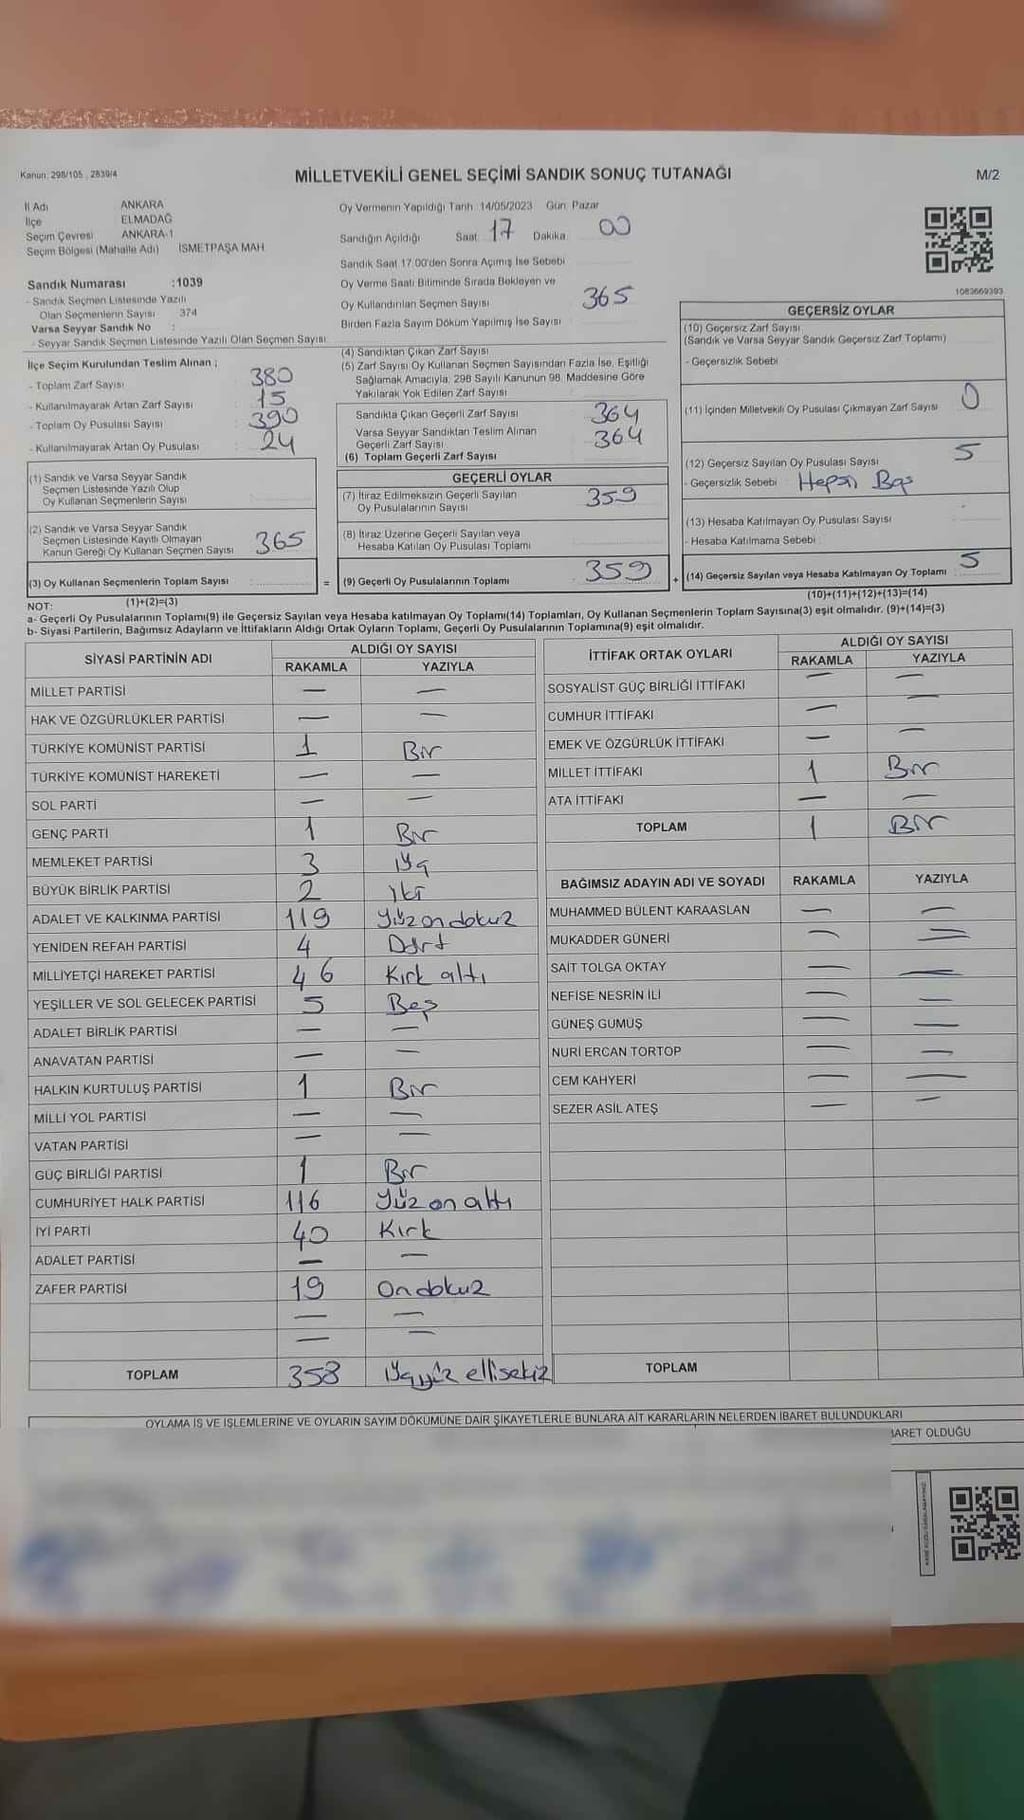 Kanun: 298/105 , 2839/4
MİLLETVEKİLİ GENEL SEÇİMİ SANDIK SONUÇ TUTANAĞI
M/2
İl Adı ANKARA
İlçe ELMADAĞ
Seçim Çevresi ANKARA-1
Seçim Bölgesi (Mahalle Adı) İSMETPAŞA MAH
Sandık Numarası :1039
- Sandık Seçmen Listesinde Yazılı
Olan Seçmenlerin Sayısı 374
Varsa Seyyar Sandık No :
- Seyyar Sandık Seçmen Listesinde Yazılı Olan Seçmen Sayısı
İlçe Seçim Kurulundan Teslim Alınan ;
- Toplam Zarf Sayısı 380
- Kullanılmayarak Artan Zarf Sayısı 15
- Toplam Oy Pusulası Sayısı 390
- Kullanılmayarak Artan Oy Pusulası 24
(1) Sandık ve Varsa Seyyar Sandık
Seçmen Listesinde Yazılı Olup
Oy Kullanan Seçmenlerin Sayısı
(2) Sandık ve Varsa Seyyar Sandık
Seçmen Listesinde Kayıtlı Olmayan
Kanun Gereği Oy Kullanan Seçmen Sayısı 365
(3) Oy Kullanan Seçmenlerin Toplam Sayısı
(1)+(2)=(3)
Oy Vermenin Yapıldığı Tarih: 14/05/2023 Gün: Pazar
Sandığın Açıldığı Saat: 17 Dakika: 00
Sandık Saat 17.00'den Sonra Açımış İse Sebebi
Oy Verme Saati Bitiminde Sırada Bekleyen ve
Oy Kullandırılan Seçmen Sayısı 365
Birden Fazla Sayım Döküm Yapılmış İse Sayısı
(4) Sandıktan Çıkan Zarf Sayısı
(5) Zarf Sayısı Oy Kullanan Seçmen Sayısından Fazla İse, Eşitliği
Sağlamak Amacıyla, 298 Sayılı Kanunun 98. Maddesine Göre
Yakılarak Yok Edilen Zarf Sayısı
Sandıkta Çıkan Geçerli Zarf Sayısı 364
Varsa Seyyar Sandıktan Teslim Alınan
Geçerli Zarf Sayısı 364
(6) Toplam Geçerli Zarf Sayısı
GEÇERLİ OYLAR
(7) İtiraz Edilmeksizin Geçerli Sayılan
Oy Pusulalarının Sayısı 359
(8) İtiraz Üzerine Geçerli Sayılan veya
Hesaba Katılan Oy Pusulası Toplamı
= (9) Geçerli Oy Pusulalarının Toplamı 359 +
1083669393
GEÇERSİZ OYLAR
(10) Geçersiz Zarf Sayısı
(Sandık ve Varsa Seyyar Sandık Geçersiz Zarf Toplamı)
- Geçersizlik Sebebi
(11) İçinden Milletvekili Oy Pusulası Çıkmayan Zarf Sayısı 0
(12) Geçersiz Sayılan Oy Pusulası Sayısı 5
- Geçersizlik Sebebi Hepsi Boş
(13) Hesaba Katılmayan Oy Pusulası Sayısı
- Hesaba Katılmama Sebebi :
(14) Geçersiz Sayılan veya Hesaba Katılmayan Oy Toplamı 5
(10)+(11)+(12)+(13)=(14)
NOT:
a- Geçerli Oy Pusulalarının Toplamı(9) ile Geçersiz Sayılan veya Hesaba katılmayan Oy Toplamı(14) Toplamları, Oy Kullanan Seçmenlerin Toplam Sayısına(3) eşit olmalıdır. (9)+(14)=(3)
b- Siyasi Partilerin, Bağımsız Adayların ve İttifakların Aldığı Ortak Oyların Toplamı, Geçerli Oy Pusulalarının Toplamına(9) eşit olmalıdır.
SİYASİ PARTİNİN ADI ALDIĞI OY SAYISI
RAKAMLA YAZIYLA
MİLLET PARTİSİ — —
HAK VE ÖZGÜRLÜKLER PARTİSİ — —
TÜRKİYE KOMÜNİST PARTİSİ 1 Bir
TÜRKİYE KOMÜNİST HAREKETİ — —
SOL PARTİ — —
GENÇ PARTİ 1 Bir
MEMLEKET PARTİSİ 3 Üç
BÜYÜK BİRLİK PARTİSİ 2 İki
ADALET VE KALKINMA PARTİSİ 119 Yüzondokuz
YENİDEN REFAH PARTİSİ 4 Dört
MİLLİYETÇİ HAREKET PARTİSİ 46 Kırk altı
YEŞİLLER VE SOL GELECEK PARTİSİ 5 Beş
ADALET BİRLİK PARTİSİ — —
ANAVATAN PARTİSİ — —
HALKIN KURTULUŞ PARTİSİ 1 Bir
MİLLİ YOL PARTİSİ — —
VATAN PARTİSİ — —
GÜÇ BİRLİĞİ PARTİSİ 1 Bir
CUMHURİYET HALK PARTİSİ 116 Yüz on altı
İYİ PARTİ 40 Kırk
ADALET PARTİSİ — —
ZAFER PARTİSİ 19 Ondokuz
— —
— —
TOPLAM 358 Üçyüz ellisekiz
İTTİFAK ORTAK OYLARI ALDIĞI OY SAYISI
RAKAMLA YAZIYLA
SOSYALİST GÜÇ BİRLİĞİ İTTİFAKI — —
CUMHUR İTTİFAKI — —
EMEK VE ÖZGÜRLÜK İTTİFAKI — —
MİLLET İTTİFAKI 1 Bir
ATA İTTİFAKI — —
TOPLAM 1 Bir
BAĞIMSIZ ADAYIN ADI VE SOYADI RAKAMLA YAZIYLA
MUHAMMED BÜLENT KARAASLAN — —
MUKADDER GÜNERİ — —
SAİT TOLGA OKTAY — —
NEFİSE NESRİN İLİ — —
GÜNEŞ GÜMÜŞ — —
NURİ ERCAN TORTOP — —
CEM KAHYERİ — —
SEZER ASİL ATEŞ — —
TOPLAM
OYLAMA İŞ VE İŞLEMLERİNE VE OYLARIN SAYIM DÖKÜMÜNE DAİR ŞİKAYETLERLE BUNLARA AİT KARARLARIN NELERDEN İBARET BULUNDUKLARI
BARET OLDUĞU